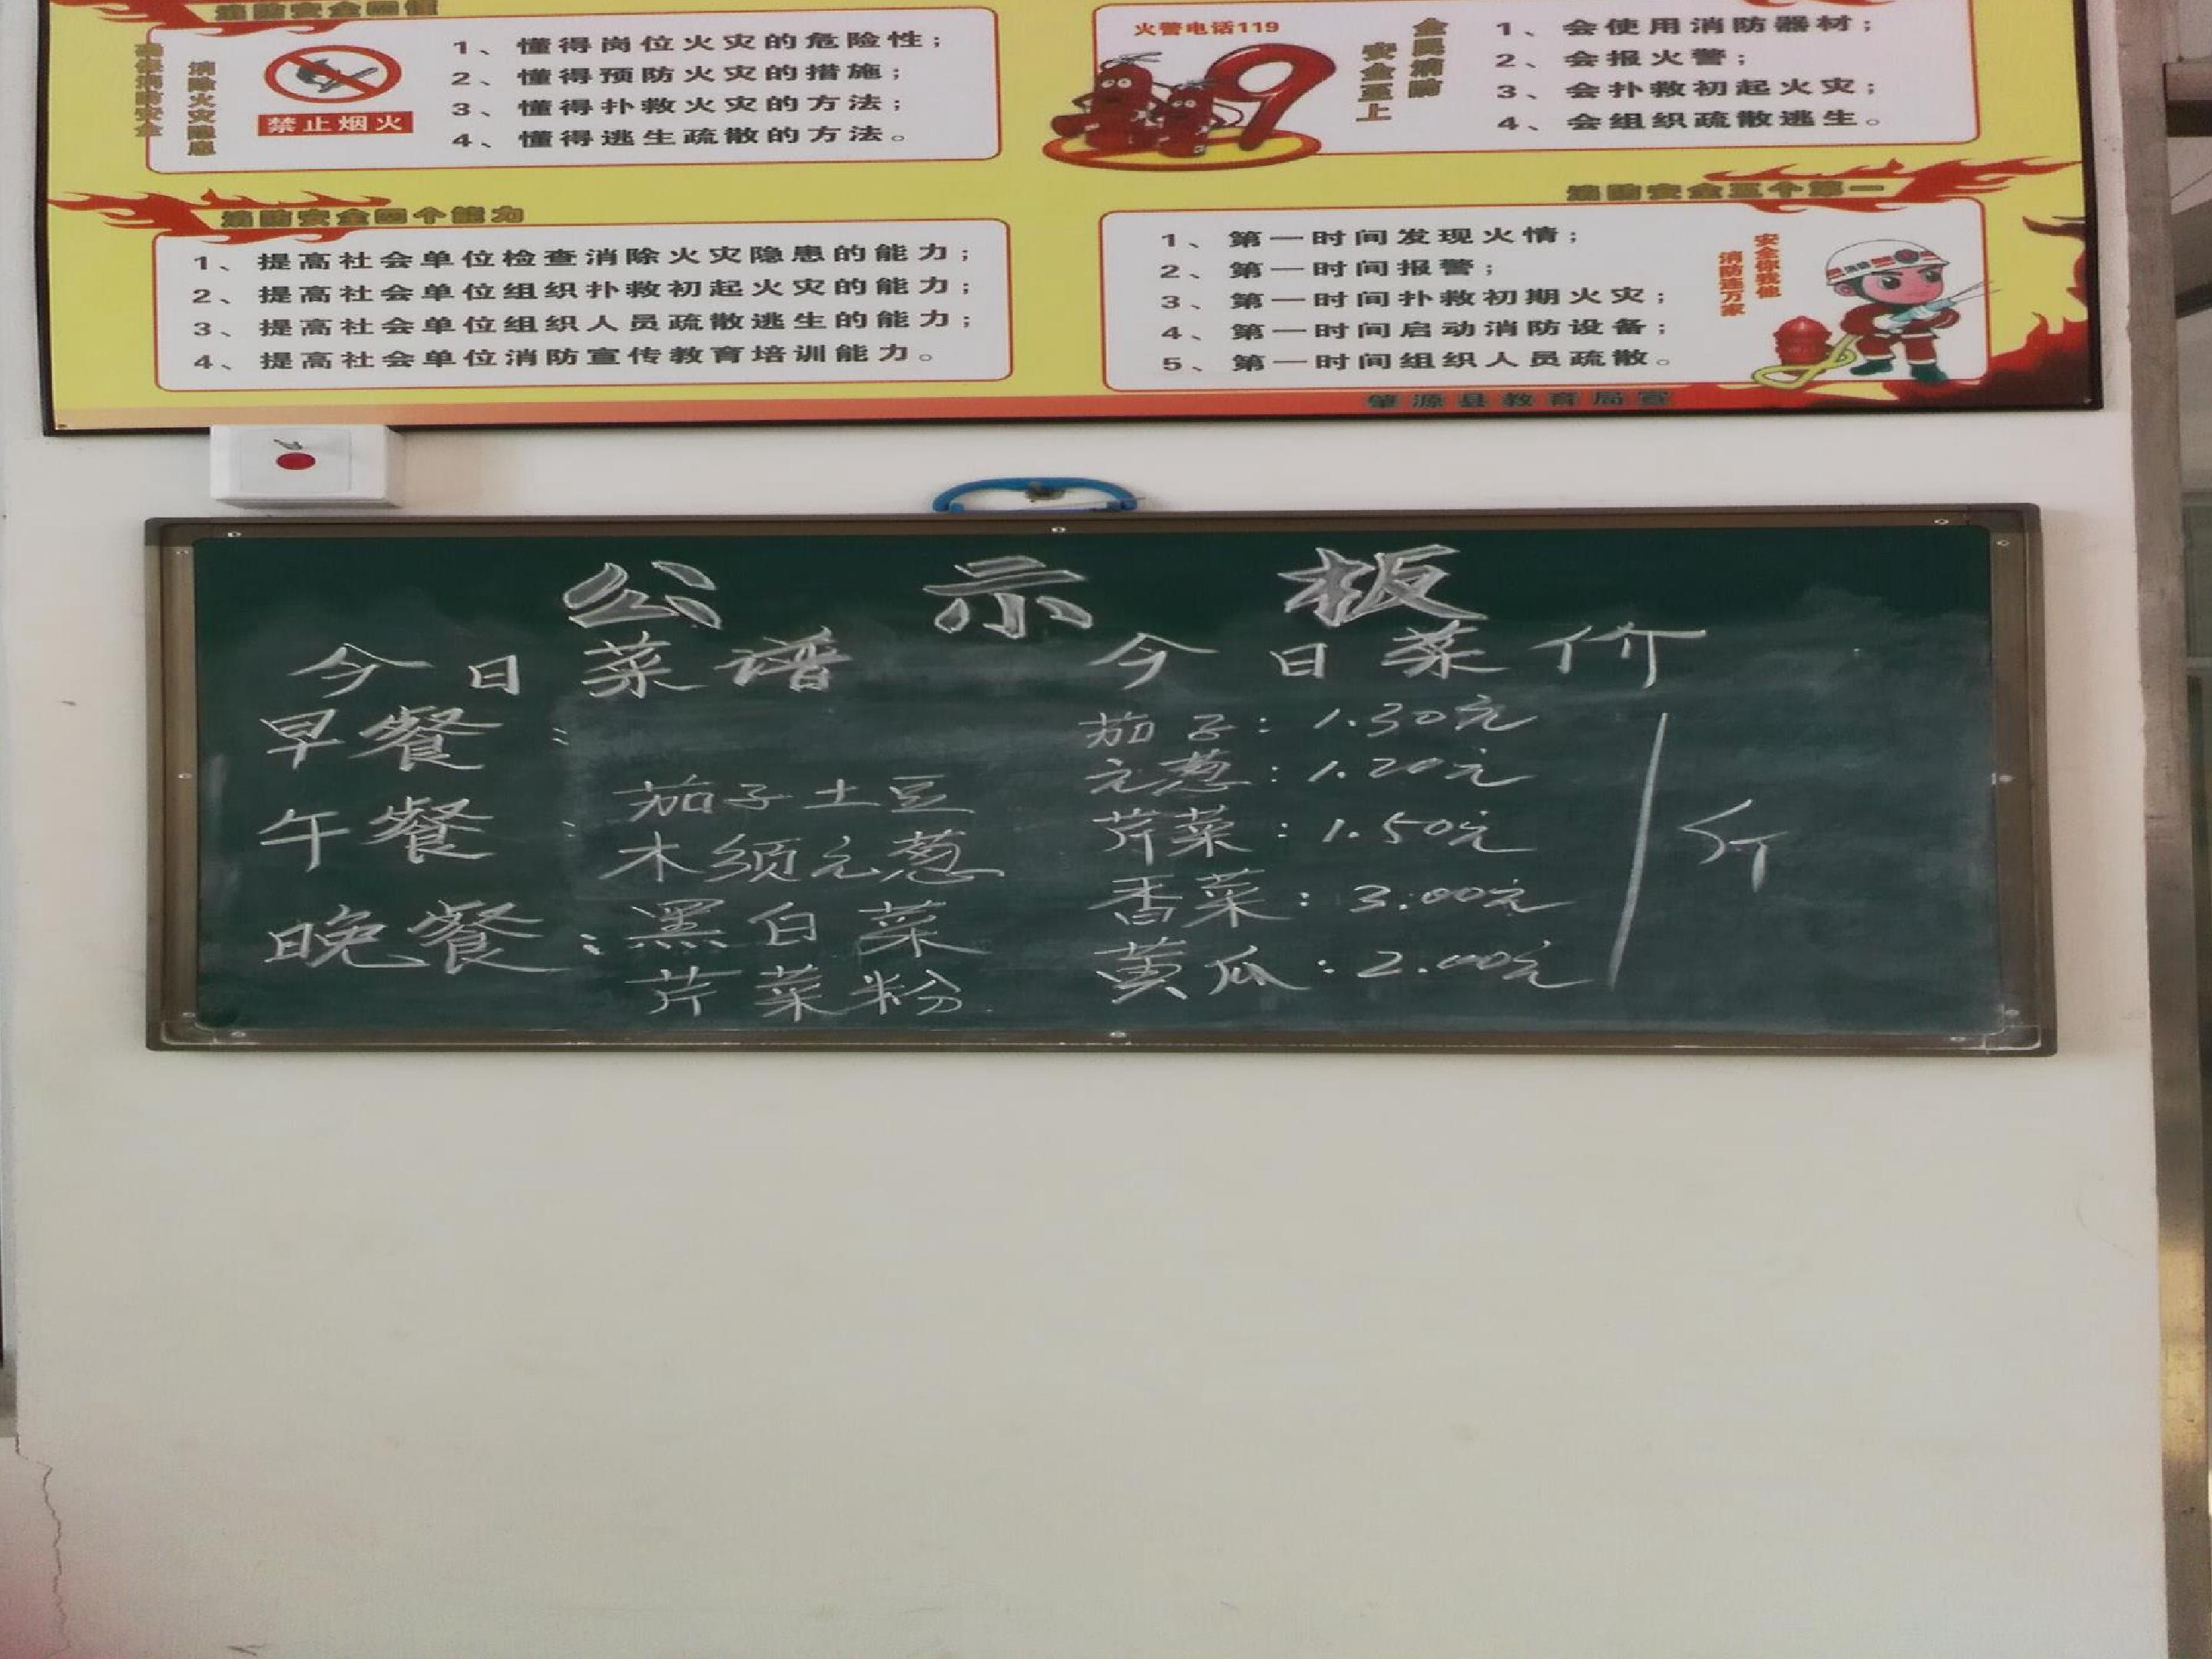 消防安全四懂
确保消防安全
消除火灾隐患
禁止烟火
1、懂得岗位火灾的危险性；
2、懂得预防火灾的措施；
3、懂得扑救火灾的方法；
4、懂得逃生疏散的方法。
火警电话119
全民消防
安全至上
1、会使用消防器材；
2、会报火警；
3、会扑救初起火灾；
4、会组织疏散逃生。
消防安全四个能力
1、提高社会单位检查消除火灾隐患的能力；
2、提高社会单位组织扑救初起火灾的能力；
3、提高社会单位组织人员疏散逃生的能力；
4、提高社会单位消防宣传教育培训能力。
消防安全五个第一
1、第一时间发现火情；
2、第一时间报警；
3、第一时间扑救初期火灾；
4、第一时间启动消防设备；
5、第一时间组织人员疏散。
安全你我他
消防连万家
肇源县教育局宣
公示板
今日菜谱
早餐：
午餐：茄子土豆
木须元葱
晚餐：黑白菜
芹菜粉
今日菜价
茄子：1.30元
元葱：1.20元
芹菜：1.50元
香菜：3.00元
黄瓜：2.00元
/斤